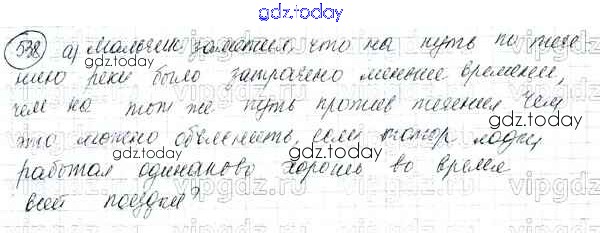 gdz.today
538 а) Мальчик заметил, что на путь по тече
нию реки было затрачено меньше времени,
чем на тот же путь против течения. Чем
gdz.today
gdz.today
это можно объяснить, если мотор лодки
gdz.today
работал одинаково хорошо во время
всей поездки?
vipgdz.ru